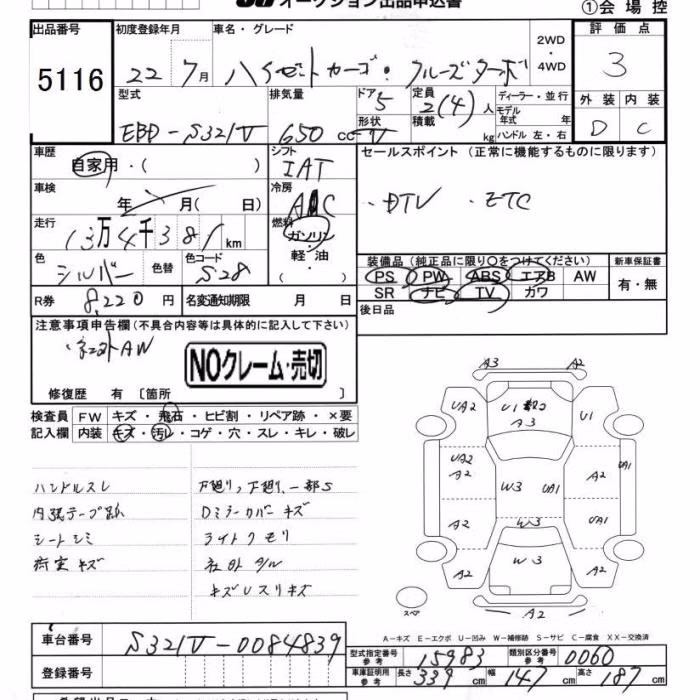 オークション出品申込書
①会場控
出品番号 初度登録年月 車名・グレード 2WD・4WD 評価点
5116 22 7月 ハイゼットカーゴ・クルーズターボ 3
型式 排気量 ドア 5 定員 2(4)人 ディーラー・並行 外装 内装
EBD-S321V 650 cc 形状 V 積載 kg モデル年式 年 ハンドル 左・右 D C
車歴 自家用・( ) シフト IAT セールスポイント(正常に機能するものに限ります)
車検 年 月( 日) 冷房 AC ・DTV ・ETC
走行 13万4千381km 燃料 ガソリン・軽・油・( )
装備品(純正品に限り○をつけてください) 新車保証書
色 シルバー 色替 色コード S28 PS PW ABS エアB AW 有・無
SR ナビ TV カワ
R券 8,220円 名変通知期限 月 日 後日品
注意事項申告欄(不具合内容等は具体的に記入して下さい)
NOクレーム・売切
修復歴 有 〔箇所 〕
検査員 FW キズ・飛石・ヒビ割・リペア跡・×要
記入欄 内装 キズ・汚レ・コゲ・穴・スレ・キレ・破レ
ハンドルスレ 下廻り、下廻り、一部S
内張テープ跡 Dミラーカバーキズ
シートシミ ライトクモリ
荷室キズ 社外マフル
キズUスリキズ
A3 A2
UA2 U1 A3 U1
UA2 A2 W3 UA1 A2 UA1
A2 W3 UA1
A2 W3 A2
スペア A2
A-キズ E-エクボ U-凹み W-補修跡 S-サビ C-腐食 XX-交換済
車台番号 S321V-0084839
型式指定番号 参考 15983 類別区分番号 参考 0060
登録番号 車庫証明用 参考 長さ 339cm 幅 147cm 高さ 187cm